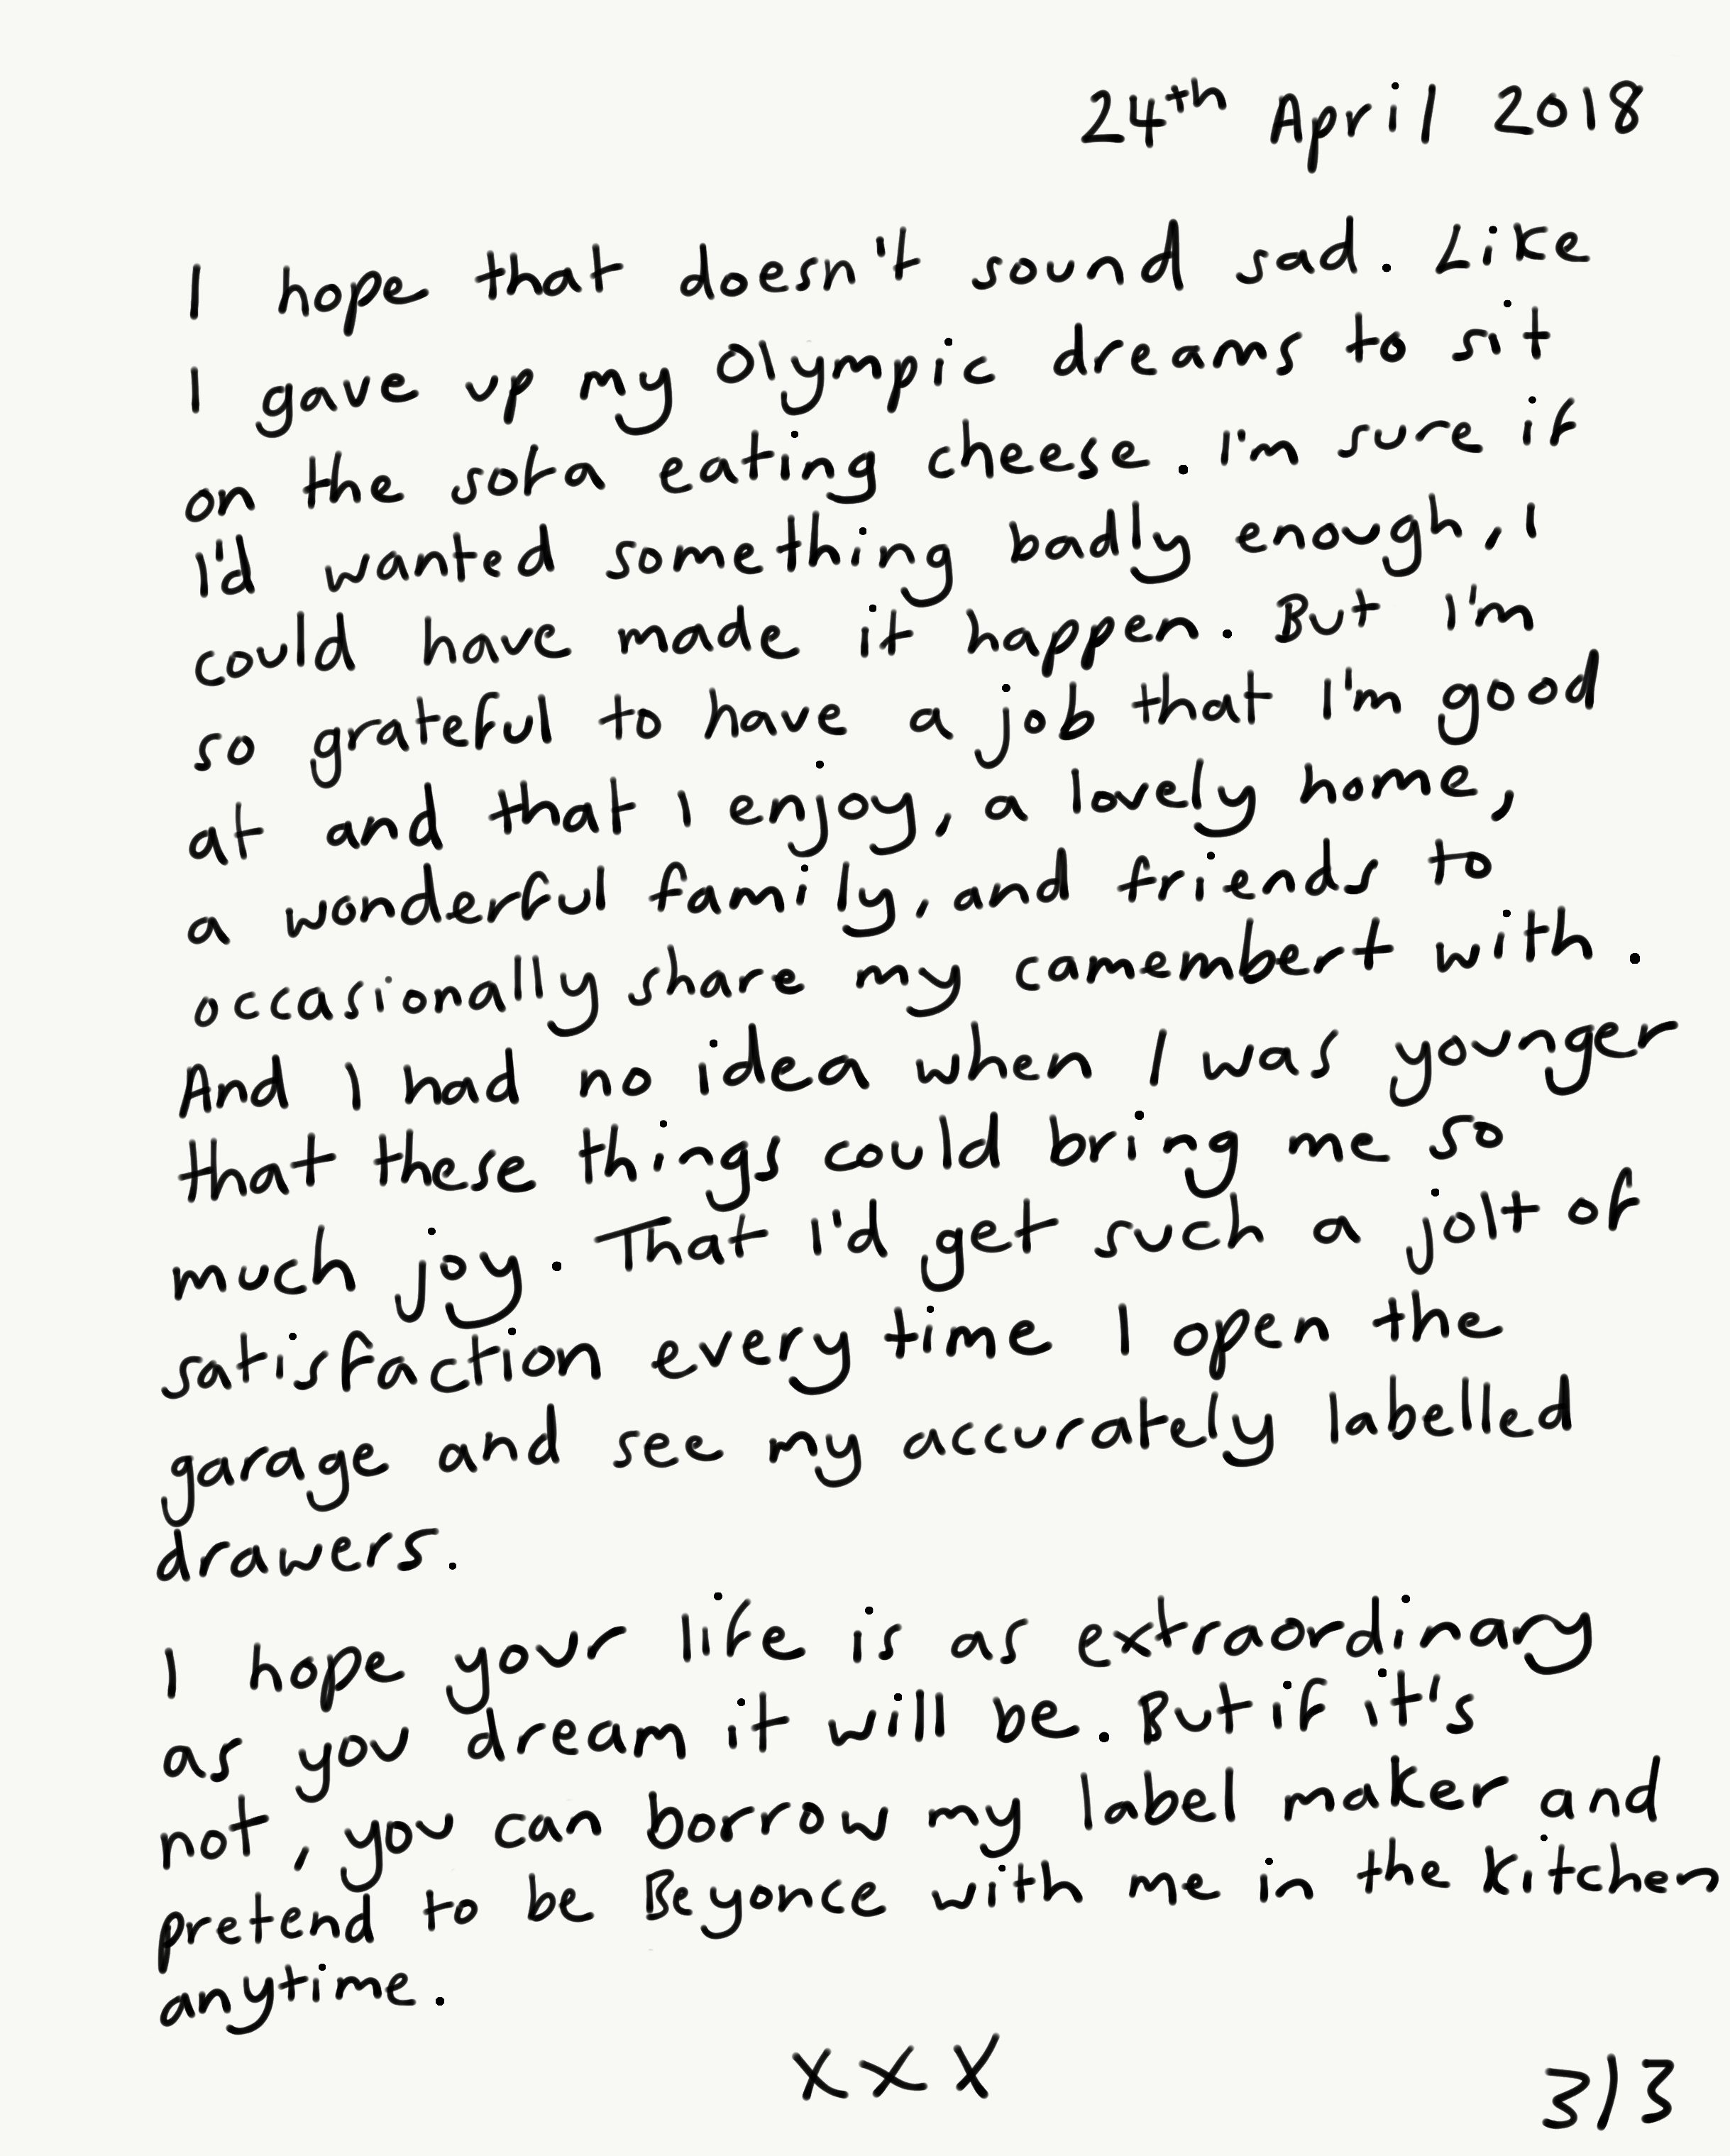 24th April 2018
I hope that doesn't sound sad. Like
I gave up my Olympic dreams to sit
on the sofa eating cheese. I'm sure if
I'd wanted something badly enough, I
could have made it happen. But I'm
so grateful to have a job that I'm good
at and that I enjoy, a lovely home,
a wonderful family, and friends to
occasionally share my camembert with.
And I had no idea when I was younger
that these things could bring me so
much joy. That I'd get such a jolt of
satisfaction every time I open the
garage and see my accurately labelled
drawers.
I hope your life is as extraordinary
as you dream it will be. But if it's
not, you can borrow my label maker and
pretend to be Beyonce with me in the kitchen
anytime.
xxx
3/3